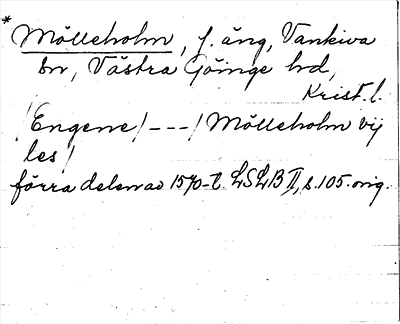 *
Mölleholm, f. äng, Vankiva
sn, Västra Göinge hd,
Krist. l.
/Engene/---/Mölleholm vij
les/
förra delen av 1570-t. LSLB II, s. 105. orig.